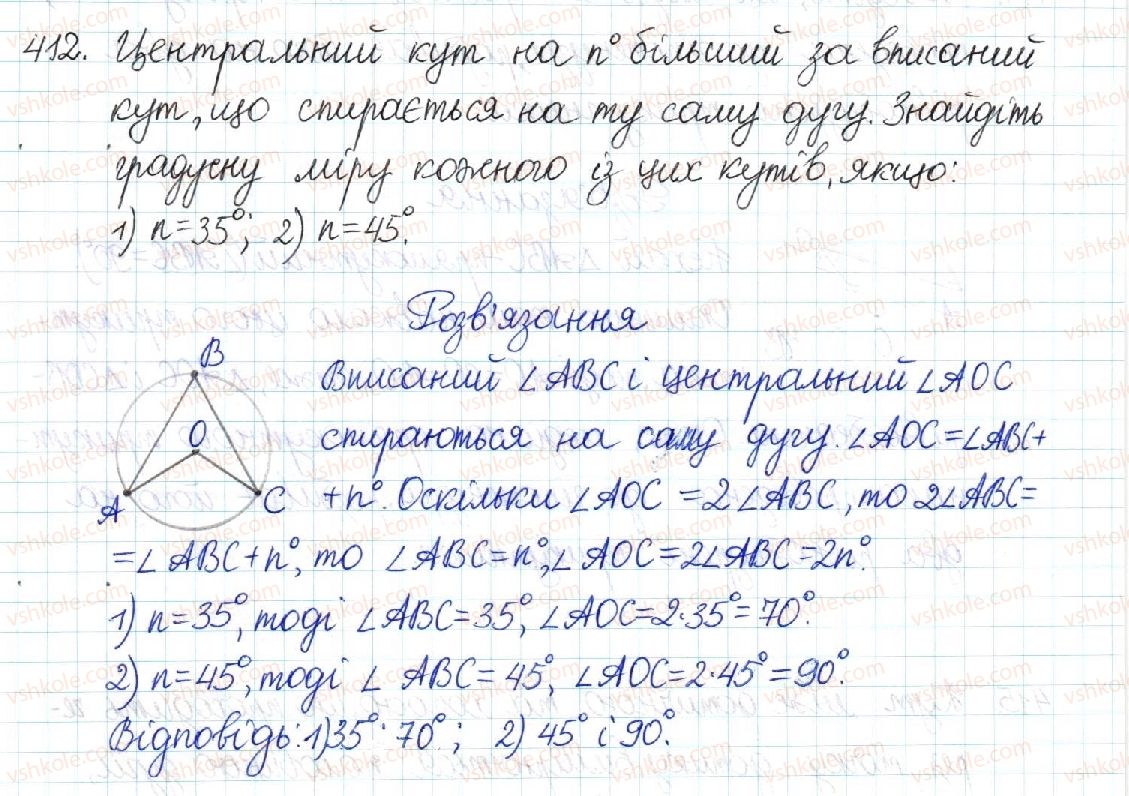 412. Центральний кут на n° більший за вписаний
кут, що спирається на ту саму дугу. Знайдіть
градусну міру кожного із цих кутів, якщо:
1) n=35°; 2) n=45°.
Розв'язання
B
O
A
C
Вписаний ∠ABC і центральний ∠AOC
спираються на саму дугу. ∠AOC=∠ABC+
+n°. Оскільки ∠AOC =2∠ABC, то 2∠ABC=
=∠ABC+n°, то ∠ABC=n°, ∠AOC=2∠ABC=2n°.
1) n=35°, тоді ∠ABC=35°, ∠AOC=2·35°=70°.
2) n=45°, тоді ∠ ABC=45°, ∠AOC=2·45°=90°.
Відповідь: 1)35° 70°; 2) 45° і 90°.
vshkole.com